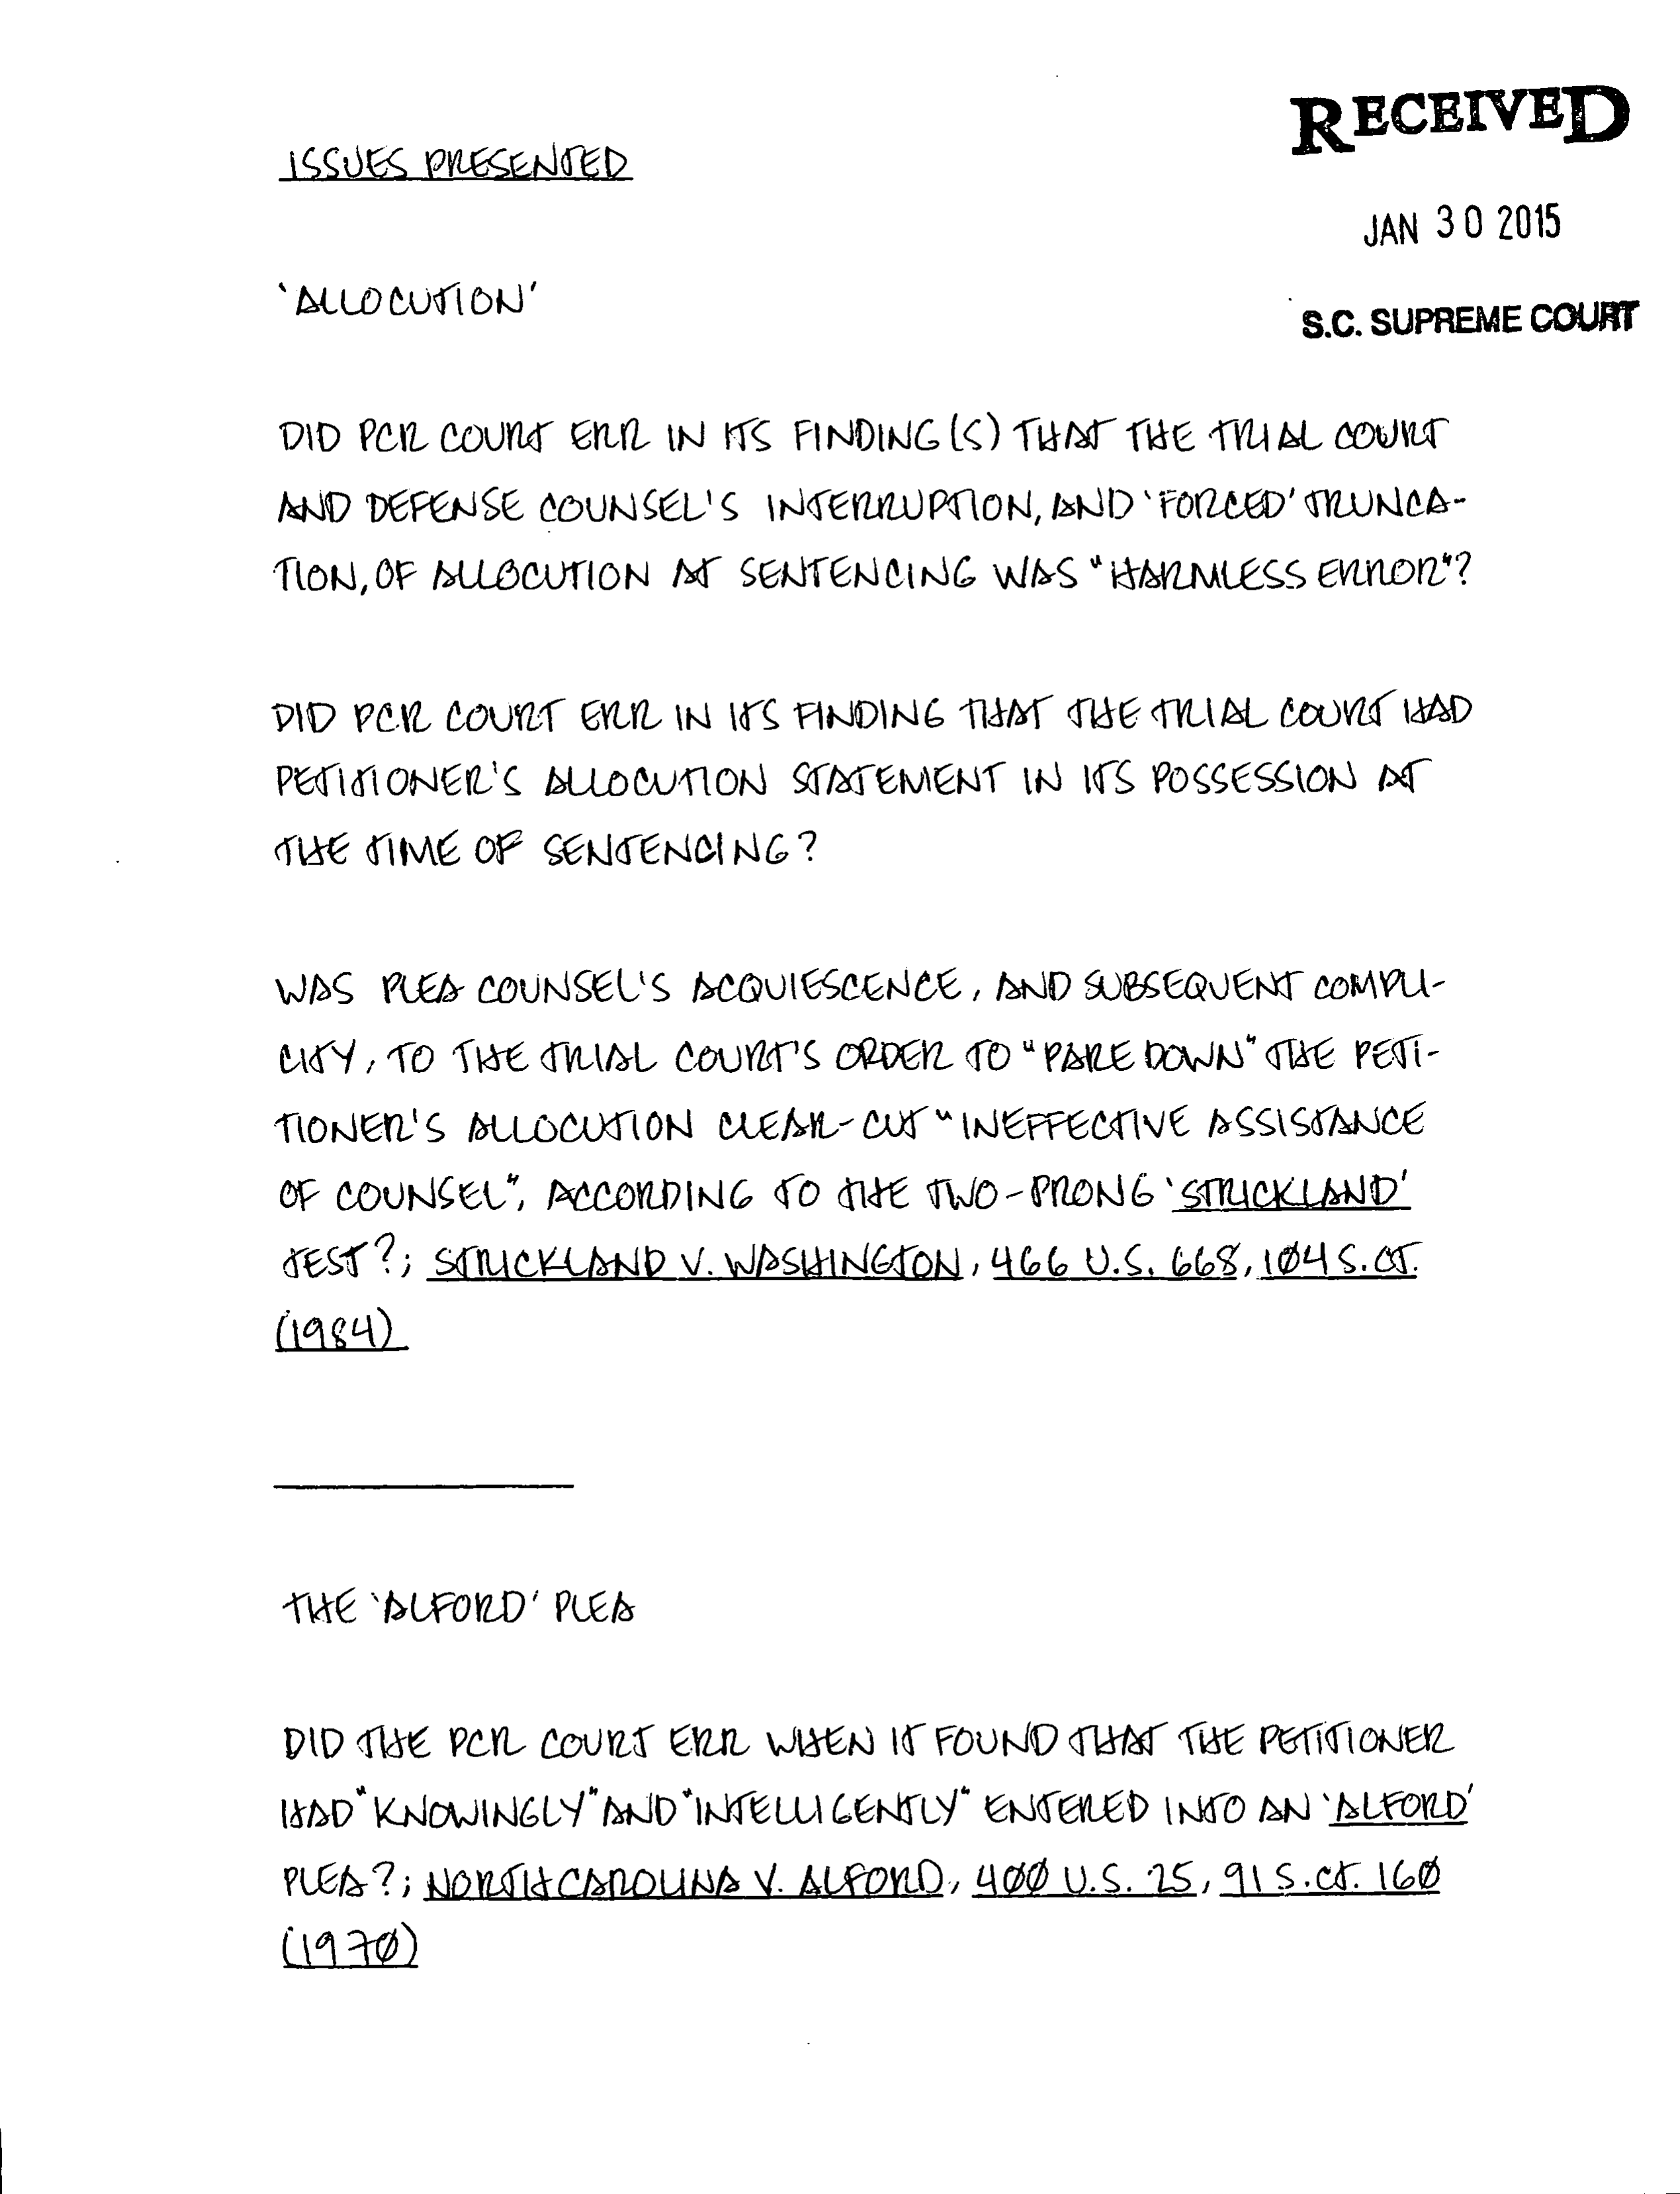 RECEIVED
ISSUES PRESENTED
JAN 30 2015
'ALLOCUTION'
S.C. SUPREME COURT
DID PCR COURT ERR IN ITS FINDING(S) THAT THE TRIAL COURT
AND DEFENSE COUNSEL'S INTERRUPTION, AND 'FORCED' TRUNCA-
TION, OF ALLOCUTION AT SENTENCING WAS "HARMLESS ERROR"?
DID PCR COURT ERR IN ITS FINDING THAT THE TRIAL COURT HAD
PETITIONER'S ALLOCUTION STATEMENT IN ITS POSSESSION AT
THE TIME OF SENTENCING?
WAS PLEA COUNSEL'S ACQUIESCENCE, AND SUBSEQUENT COMPLI-
CITY, TO THE TRIAL COURT'S ORDER TO "PARE DOWN" THE PETI-
TIONER'S ALLOCUTION CLEAR-CUT "INEFFECTIVE ASSISTANCE
OF COUNSEL", ACCORDING TO THE TWO-PRONG 'STRICKLAND'
TEST?; STRICKLAND V. WASHINGTON, 466 U.S. 668, 104 S.CT.
(1984)
THE 'ALFORD' PLEA
DID THE PCR COURT ERR WHEN IT FOUND THAT THE PETITIONER
HAD "KNOWINGLY" AND "INTELLIGENTLY" ENTERED INTO AN 'ALFORD'
PLEA?; NORTH CAROLINA V. ALFORD, 400 U.S. 25, 91 S.CT. 160
(1970)